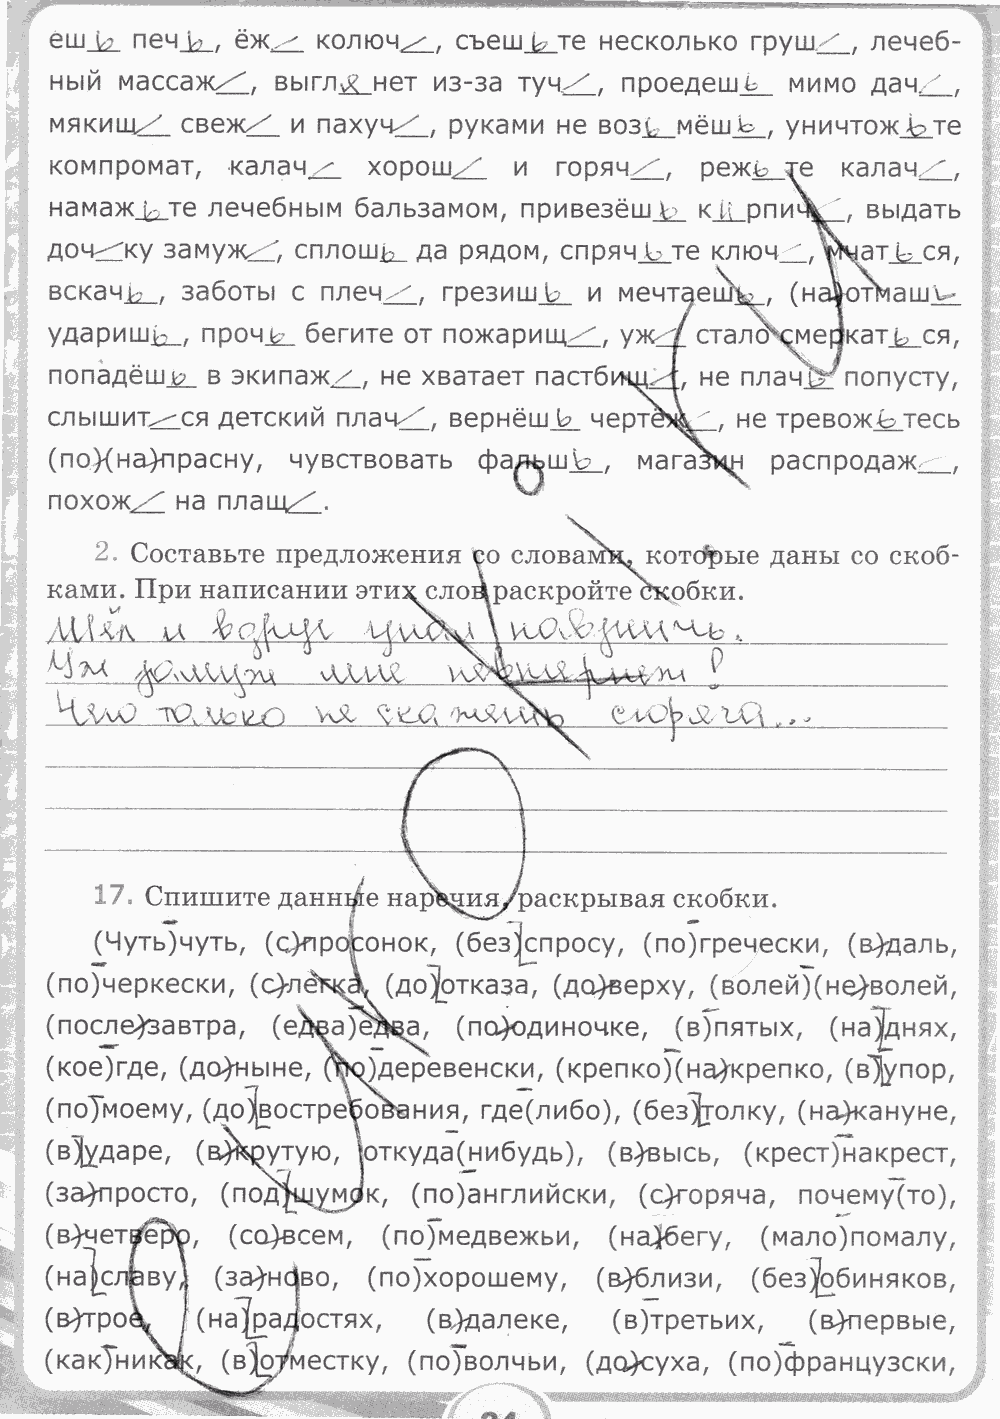 ешь печь, ёж колюч, съешьте несколько груш, лечеб-
ный массаж, выглянет из-за туч, проедешь мимо дач,
мякиш свеж и пахуч, руками не возьмёшь, уничтожьте
компромат, калач хорош и горяч, режьте калач,
намажьте лечебным бальзамом, привезёшь кирпич, выдать
дочку замуж, сплошь да рядом, спрячьте ключ, мчаться,
вскачь, заботы с плеч, грезишь и мечтаешь, (на)отмашь
ударишь, прочь бегите от пожарищ, уж стало смеркаться,
попадёшь в экипаж, не хватает пастбищ, не плачь попусту,
слышится детский плач, вернёшь чертёж, не тревожьтесь
(по)(на)прасну, чувствовать фальшь, магазин распродаж,
похож на плащ.
2. Составьте предложения со словами, которые даны со скоб-
ками. При написании этих слов раскройте скобки.
Шёл и вдруг упал навзничь.
Уж замуж мне невтерпёж!
Чего только не скажешь сгоряча...
17. Спишите данные наречия, раскрывая скобки.
(Чуть)чуть, (с)просонок, (без)спросу, (по)гречески, (в)даль,
(по)черкески, (с)легка, (до)отказа, (до)верху, (волей)(не)волей,
(после)завтра, (едва)едва, (по)одиночке, (в)пятых, (на)днях,
(кое)где, (до)ныне, (по)деревенски, (крепко)(на)крепко, (в)упор,
(по)моему, (до)востребования, где(либо), (без)толку, (на)кануне,
(в)ударе, (в)крутую, откуда(нибудь), (в)высь, (крест)накрест,
(за)просто, (под)шумок, (по)английски, (с)горяча, почему(то),
(в)четверо, (со)всем, (по)медвежьи, (на)бегу, (мало)помалу,
(на)славу, (за)ново, (по)хорошему, (в)близи, (без)обиняков,
(в)трое, (на)радостях, (в)далеке, (в)третьих, (в)первые,
(как)никак, (в)отместку, (по)волчьи, (до)суха, (по)французски,